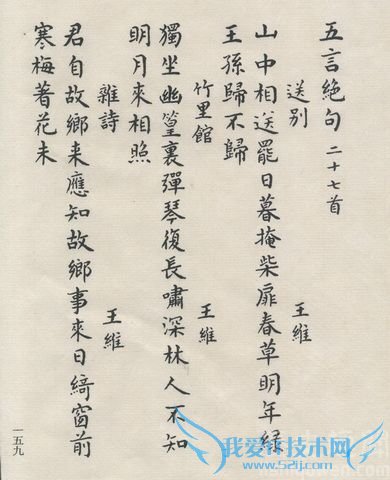 五言絕句 二十七首
送别 王維
山中相送罷日暮掩柴扉春草明年綠
王孫歸不歸
竹里館 王維
獨坐幽篁裏彈琴復長嘯深林人不知
明月來相照
雜詩 王維
君自故鄉来應知故鄉事來日綺窗前
寒梅著花未
一五九
我爱征技术网
www.52ij.com